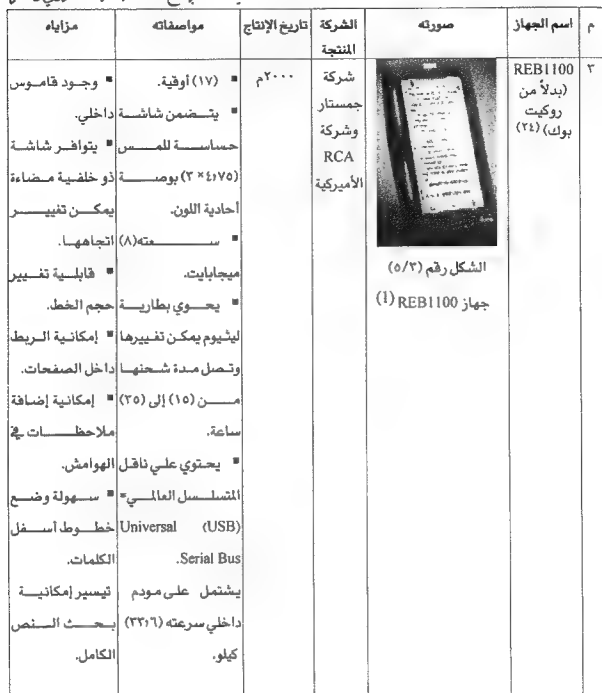 م
اسم الجهاز
صورته
الشركة
المنتجة
تاريخ الإنتاج
مواصفاته
مزاياه
٣
REB1100
(بدلاً من
روكيت
بوك) (٢٤)
الشكل رقم (٥/٣)
جهاز REB1100 (1)
شركة
جمستار
وشركة
RCA
الأميركية
٢٠٠٠م
▪ (١٧) أوقية.
▪ يتضمن شاشة
حساسة للمس
(٤،٧٥ × ٣) بوصة
أحادية اللون.
▪ سعته (٨)
ميجابايت.
▪ يحوي بطارية
ليثيوم يمكن تغييرها
وتصل مدة شحنها
من (١٥) إلى (٣٥)
ساعة.
▪ يحتوي علي ناقل
المتسلسل العالمي=
Universal (USB)
Serial Bus.
يشتمل على مودم
داخلي سرعته (٣٣،٦)
كيلو.
▪ وجود قاموس
داخلي.
▪ يتوافر شاشة
ذو خلفية مضاءة
يمكن تغيير
اتجاهها.
▪ قابلية تغيير
حجم الخط.
▪ إمكانية الربط
داخل الصفحات.
▪ إمكانية إضافة
ملاحظات في
الهوامش.
▪ سهولة وضع
خطوط أسفل
الكلمات.
تيسير إمكانية
بحث النص
الكامل.